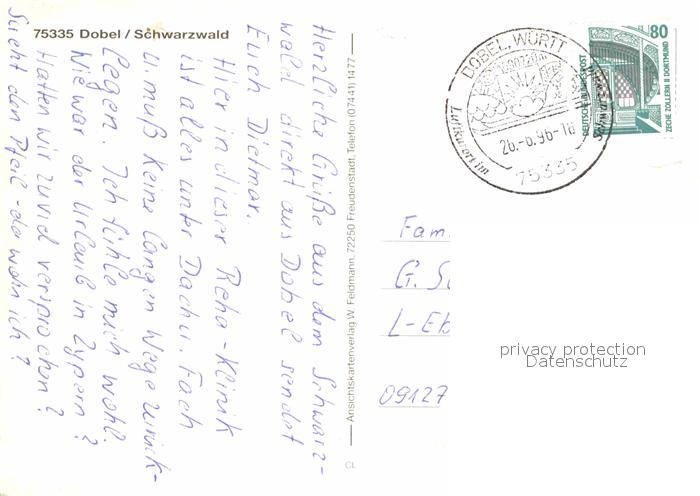 75335 Dobel / Schwarzwald
Herzliche Grüße aus dem Schwarz-
wald direkt aus Dobel sendet
Euch Dietmar.
Hier in dieser Reha-Klinik
ist alles unter Dach u. Fach
u. muß keine langen Wege zurück-
legen. Ich fühle mich wohl.
Wie war der Urlaub in Zypern?
Hatten wir zuviel versprochen?
Sucht den Pfeil - da wohn ich?
Ansichtskartenverlag W. Feldmann, 72250 Freudenstadt, Telefon (07441) 1477
CL
DOBEL, WÜRTT
Luftkurort im
Schwarzwald
26.-6.96-16
75335
80
DEUTSCHE BUNDESPOST
ZECHE ZOLLERN II DORTMUND
Fam.
G. S
L-Eb
09127
privacy protection
Datenschutz